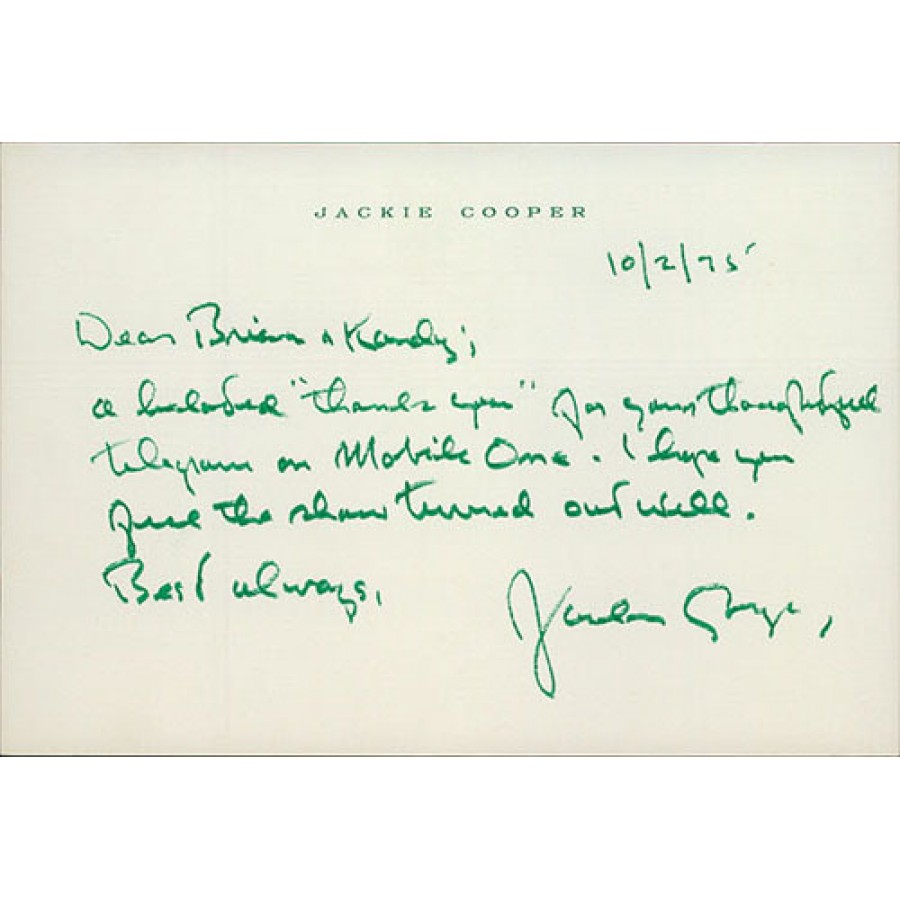 JACKIE COOPER
10/2/75
Dear Brian & Kandy;
a belated "thank you" for your thoughtful
telegram on Mobile One. I hope you
feel the show turned out well.
Best always,
Jackie Cooper,